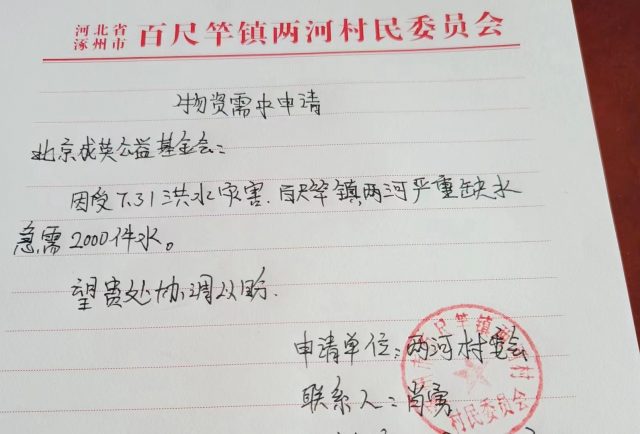 河北省
涿州市 百尺竿镇两河村民委员会
物资需求申请
北京成英公益基金会：
因受7.31洪水灾害.百尺竿镇两河严重缺水
急需2000件水。
望贵处协调以助.
申请单位：两河村委会
联系人：肖勇
村民委员会